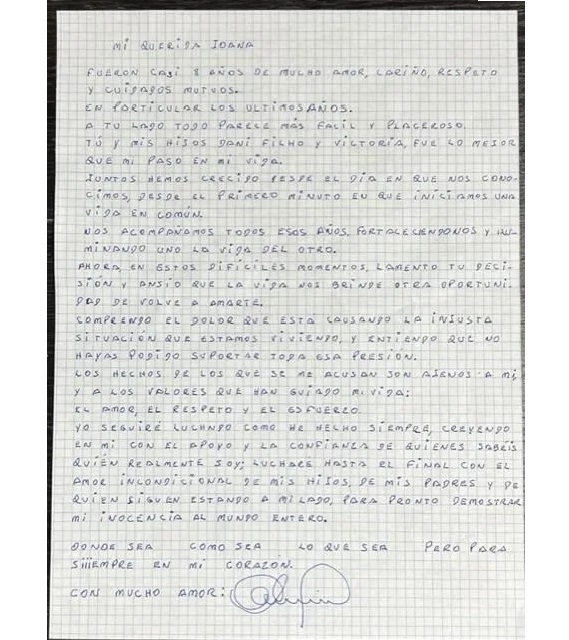 MI QUERIDA JOANA
FUERON CASI 8 AÑOS DE MUCHO AMOR, CARIÑO, RESPETO
Y CUIDADOS MUTUOS.
EN PARTICULAR LOS ULTIMOS AÑOS.
A TU LADO TODO PARECE MÁS FACIL Y PLACEROSO.
TÚ Y MIS HIJOS DANI FILHO Y VICTORIA, FUE LO MEJOR
QUE MI PASO EN MI VIDA.
JUNTOS HEMOS CRECIDO DESDE EL DÍA EN QUE NOS CONO-
CIMOS, DESDE EL PRIMERO MINUTO EN QUE INICIAMOS UNA
VIDA EN COMÚN.
NOS ACOMPAÑAMOS TODOS ESOS AÑOS, FORTALECIENDONOS Y ILU-
MINANDO UNO LA VIDA DEL OTRO.
AHORA, EN ESTOS DIFÍCILES MOMENTOS, LAMENTO TU DECI-
SIÓN Y ANSIO QUE LA VIDA NOS BRINDE OTRA OPORTUNI-
DAD DE VOLVE A AMARTE.
COMPRENDO EL DOLOR QUE ESTA CAUSANDO LA INJUSTA
SITUACIÓN QUE ESTAMOS VIVIENDO, Y ENTIENDO QUE NO
HAYAS PODIDO SUPORTAR TODA ESA PRESIÓN.
LOS HECHOS DE LOS QUE SE ME ACUSAN SON AJENOS A MI,
Y A LOS VALORES QUE HAN GUIADO MI VIDA:
EL AMOR, EL RESPETO Y EL ESFUERZO
YO SEGUIRÉ LUCHANDO COMO HE HECHO SIEMPRE, CREYENDO
EN MI CON EL APOYO Y LA CONFIANZA DE QUIENES SABÉIS
QUIÉN REALMENTE SOY; LUCHARE HASTA EL FINAL CON EL
AMOR INCONDICIONAL DE MIS HIJOS, DE MIS PADRES Y DE
QUIEN SIGUEN ESTANDO A MI LADO, PARA PRONTO DEMOSTRAR
MI INOCENCIA AL MUNDO ENTERO.
DONDE SEA COMO SEA LO QUE SEA PERO PARA
SIIIEMPRE EN MI CORAZÓN.
CON MUCHO AMOR: